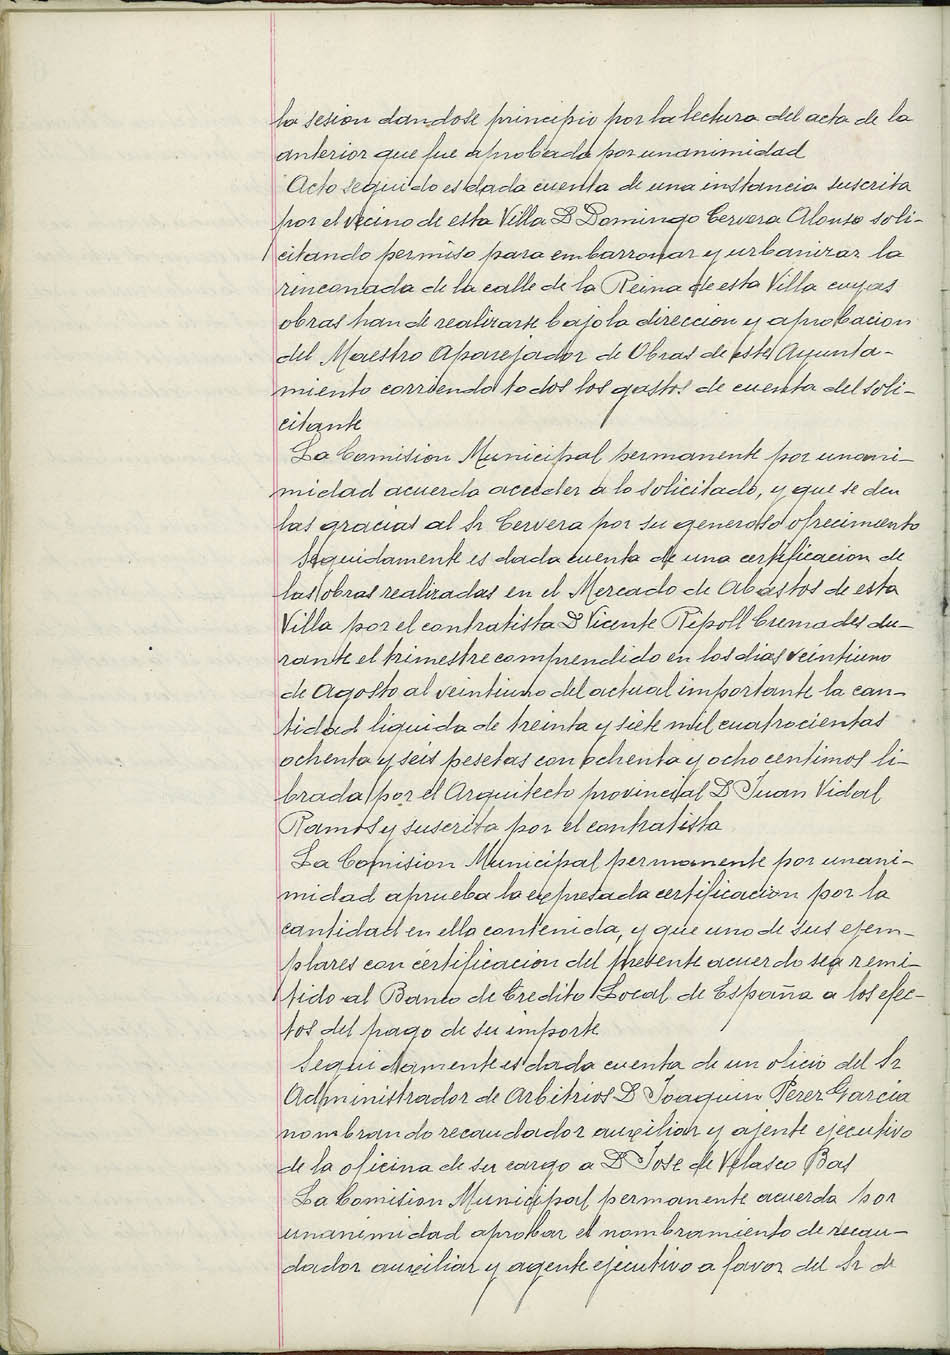 la sesion dandose principio por la lectura del acta de la
anterior que fue aprobada por unanimidad
Acto seguido es dada cuenta de una instancia suscrita
por el vecino de esta Villa D Domingo Cervera Alonso soli-
citando permiso para embarronar y urbanizar la
rinconada de la calle de la Reina de esta Villa cuyas
obras han de realizarse bajo la direccion y aprobacion
del Maestro Aparejador de Obras de este Ayunta-
miento corriendo todos los gastos de cuenta del soli-
citante
La Comision Municipal permanente por unani-
midad acuerda acceder a lo solicitado, y que se den
las gracias al Sr Cervera por su generoso ofrecimiento
Seguidamente es dada cuenta de una certificacion de
las obras realizadas en el Mercado de Abastos de esta
Villa por el contratista D Vicente Ripoll Cremades du-
rante el trimestre comprendido en los dias veintiuno
de Agosto al veintiuno del actual importante la can-
tidad liquida de treinta y siete mil cuatrocientas
ochenta y seis pesetas con ochenta y ocho centimos li-
brada por el Arquitecto provincial D Juan Vidal
Ramos y suscrita por el contratista
La Comision Municipal permanente por unani-
midad aprueba la expresada certificacion por la
cantidad en ella contenida, y que uno de sus ejem-
plares con certificacion del presente acuerdo sea remi-
tido al Banco de Credito Local de España a los efec-
tos del pago de su importe
Seguidamente es dada cuenta de un oficio del Sr
Administrador de Arbitrios D Joaquin Perez Garcia
nombrando recaudador auxiliar y ajente ejecutivo
de la oficina de su cargo a D Jose de Velasco Bas
La Comision Municipal permanente acuerda por
unanimidad aprobar el nombramiento de recau-
dador auxiliar y agente ejecutivo a favor del Sr de